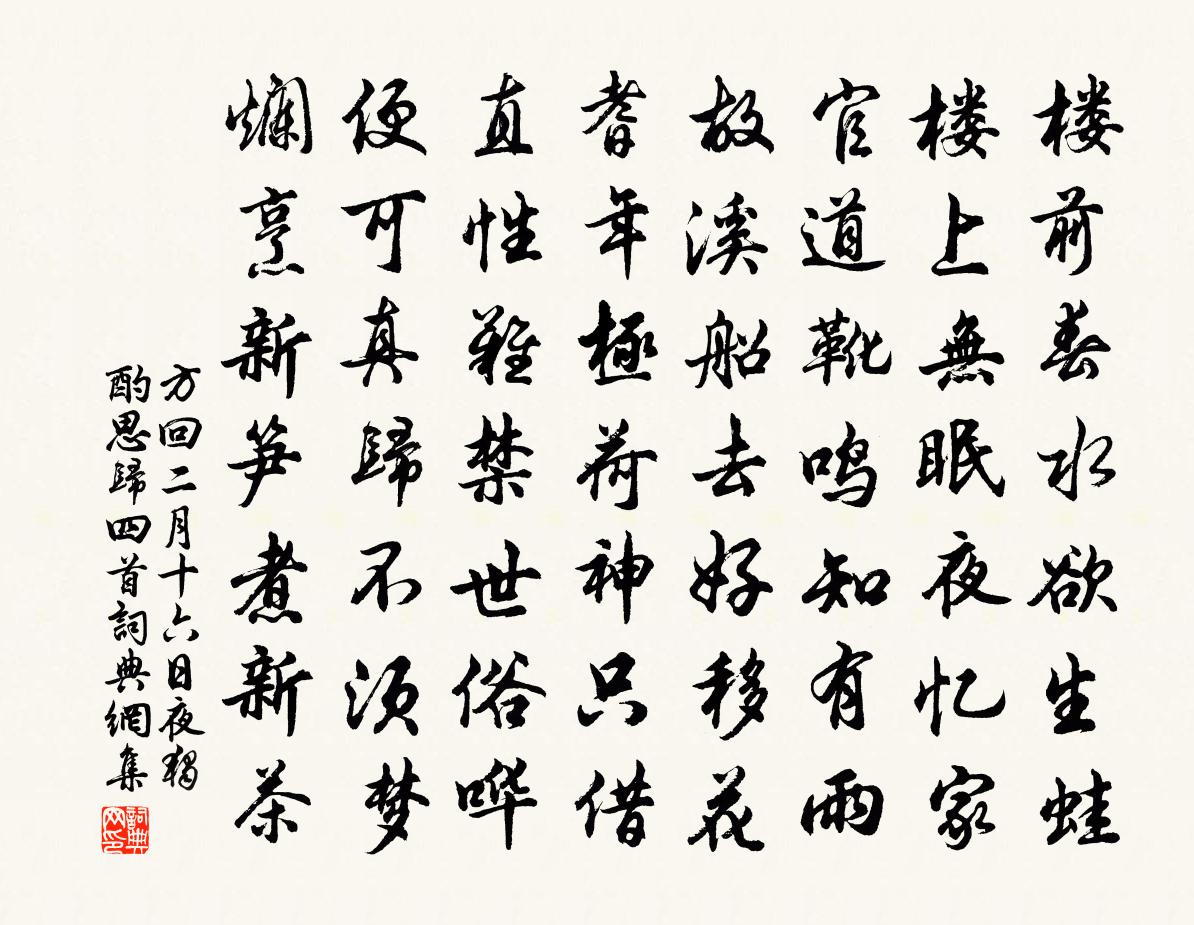 楼前春水欲生蛙
楼上無眠夜忆家
官道靴鸣知有雨
故溪船去好移花
耆年極荷神只借
直性難禁世俗哗
便可真歸不须梦
爛烹新笋煮新茶
方回二月十六日夜獨
酌思歸四首詞典網集
詞典网印